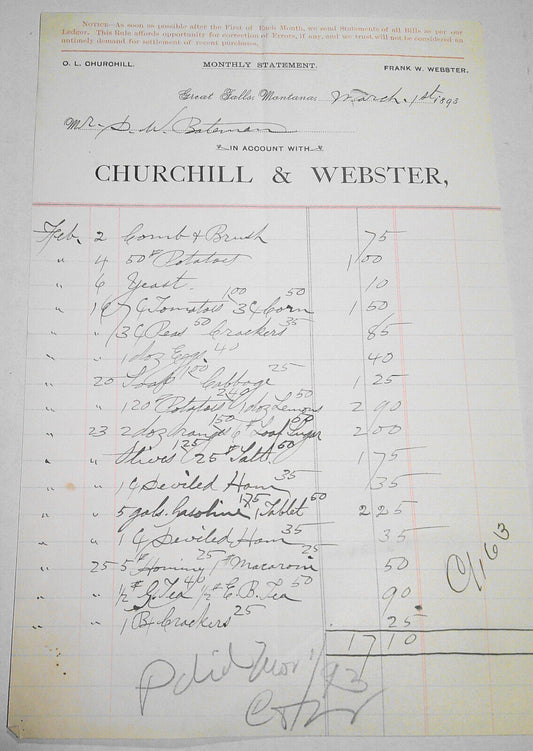 NOTICE—As soon as possible after the First of Each Month, we send Statements of all Bills as per our
Ledger. This Rule affords opportunity for correction of Errors, if any, and we trust will not be considered an
untimely demand for settlement of recent purchases.
O. L. CHURCHILL. MONTHLY STATEMENT. FRANK W. WEBSTER.
Great Falls, Montana, March 1st 1893
Mr. D. W. Bateman
IN ACCOUNT WITH
CHURCHILL & WEBSTER,
Feb. 2 Comb & Brush 75
" 4 50# Potatoes 1 00
" 6 Yeast 10
" 16 7 C Tomatoes 1 00 3 C Corn 50 1 50
" " 3 C Peas 50 Crackers 35 85
" " 1 doz Eggs 40 40
" 20 Soap 1 00 Cabbage 25 1 25
" " 120# Potatoes 2 40 1 doz Lemons 50 2 90
" 23 2 doz Oranges 1 50 6# Loaf Sugar 50 2 00
" " Olives 1 25 25# Salt 50 1 75
" " 1 C Deviled Ham 35 35
" " 5 gals. Gasoline 1 75 1 Tablet 50 2 25
" " 1 C Deviled Ham 35 35
" 25 5# Hominy 25 1# Macaroni 25 50
" " 1/2# G. Tea 40 1/2# E. B. Tea 50 90
" " 1 Bx Crackers 25 25
17 10
C/163
Paid Mar 1/93